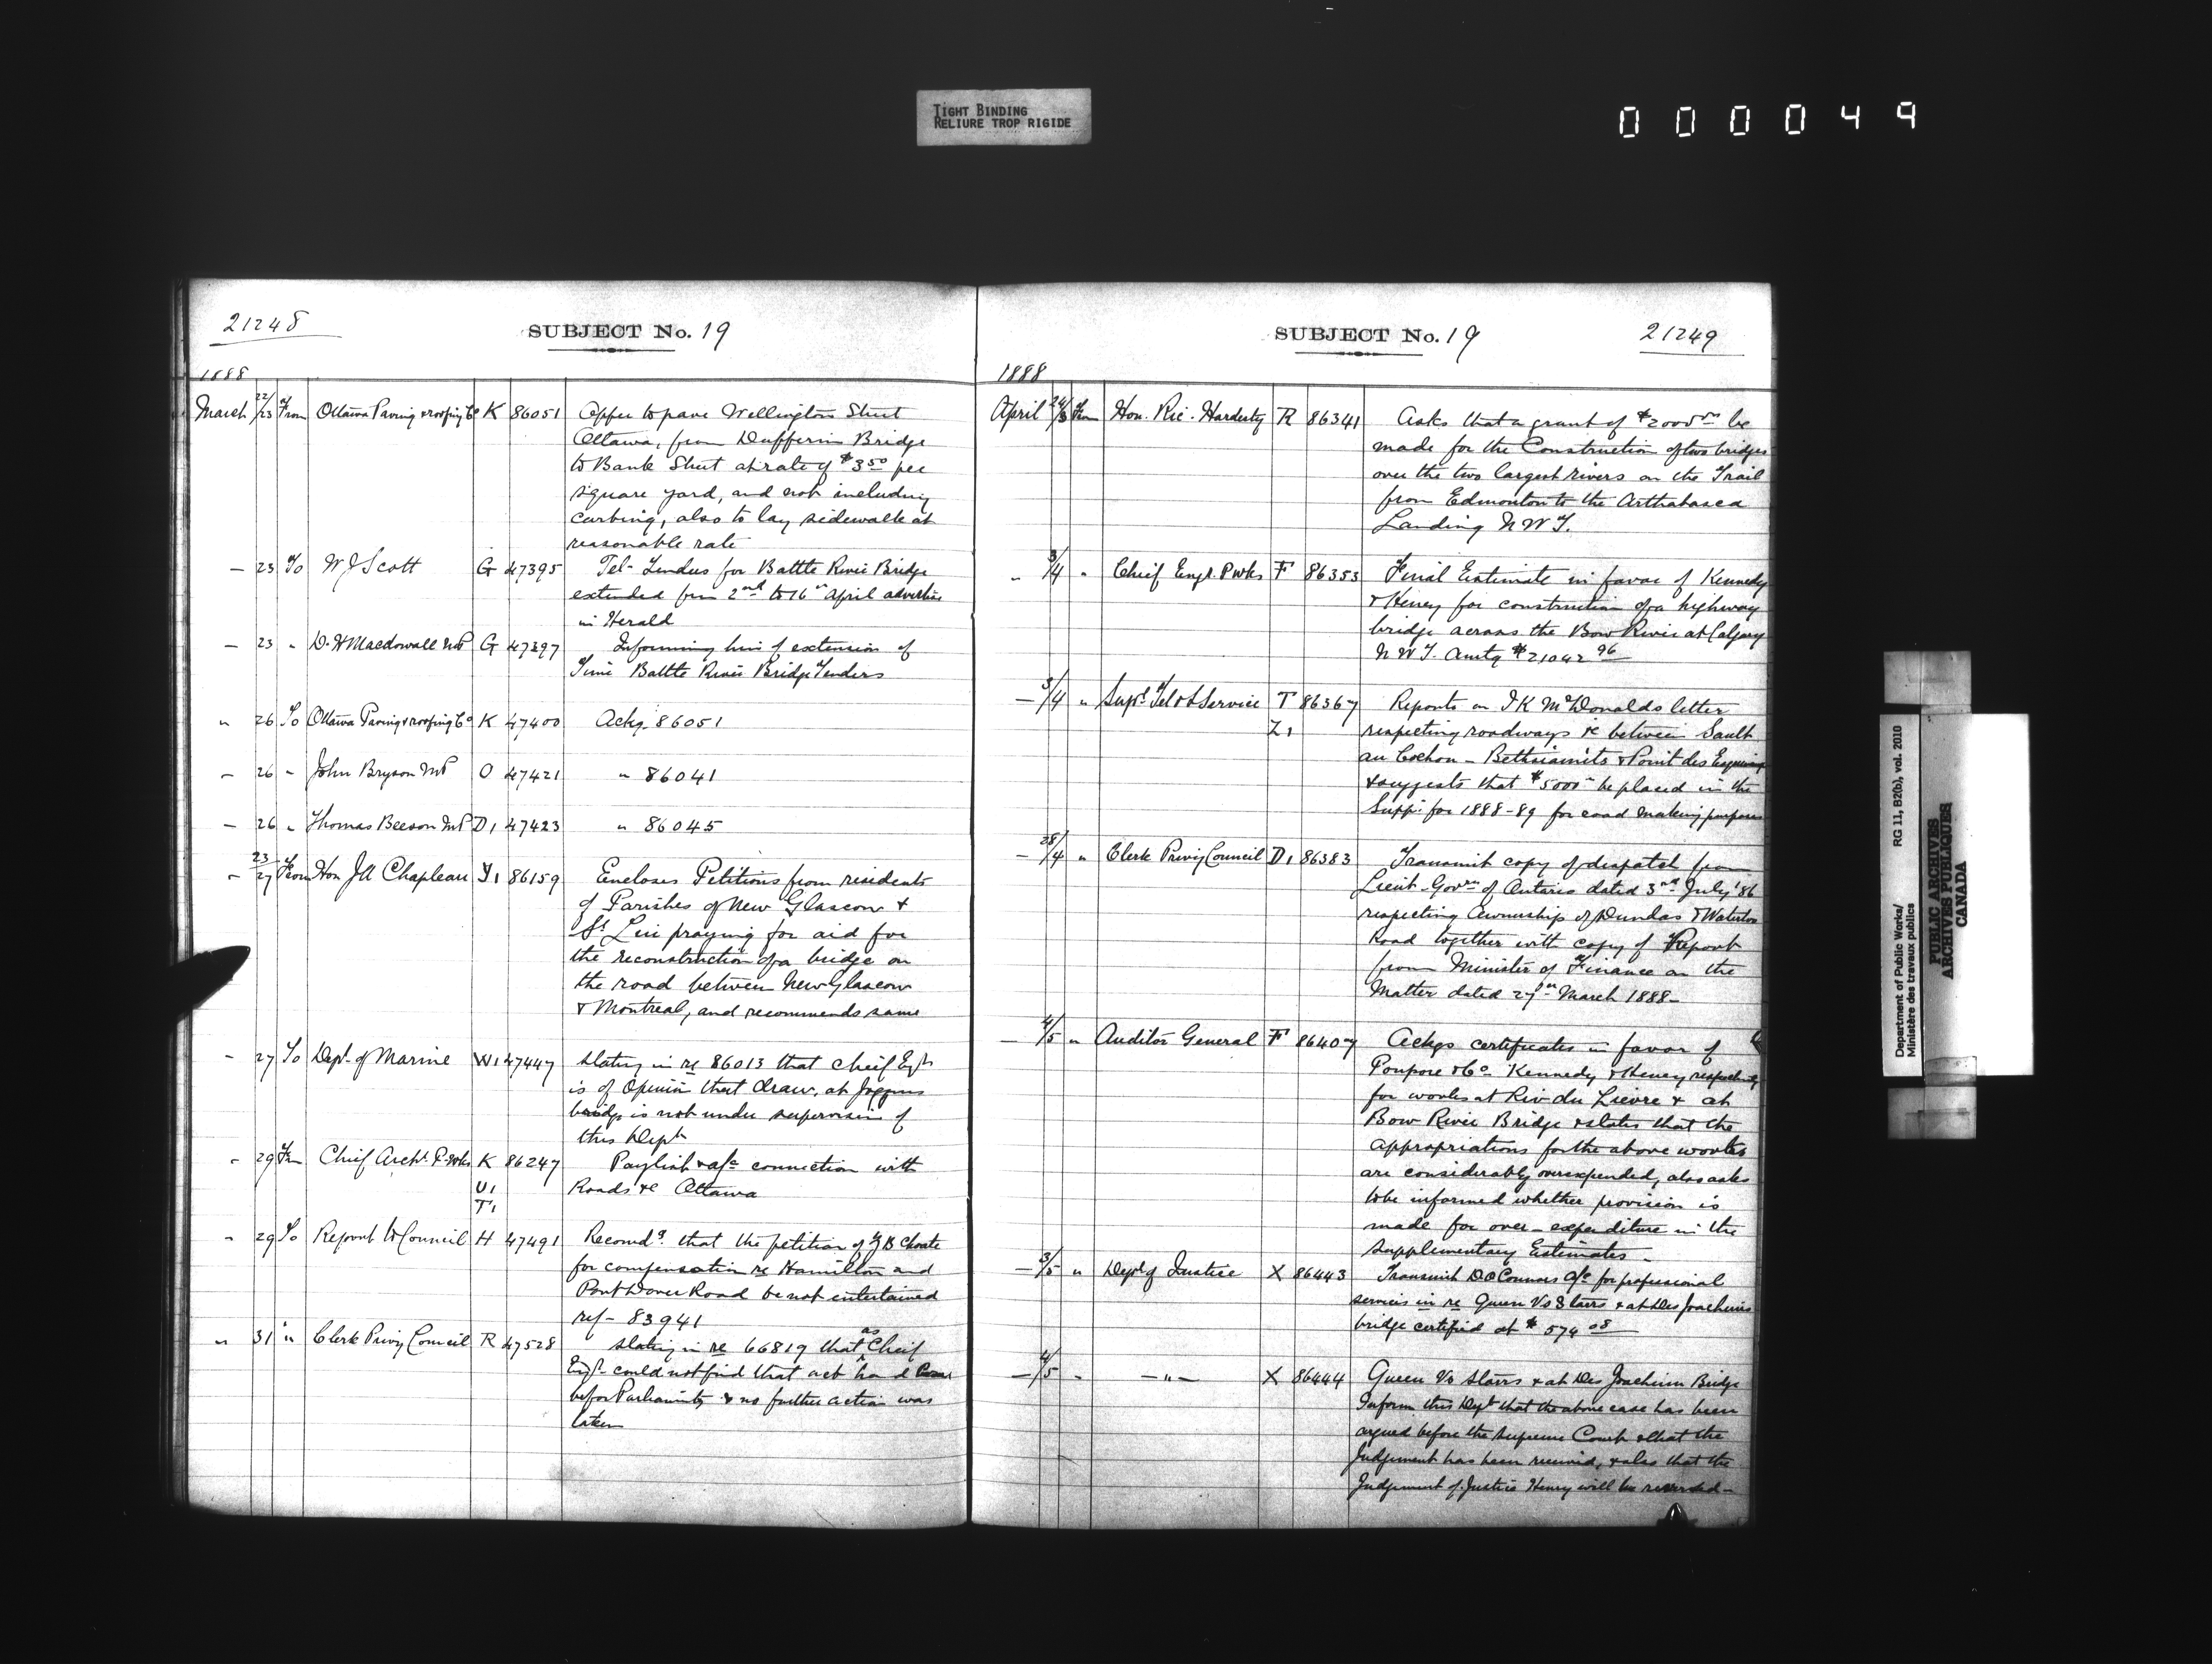 TIGHT BINDING
RELIURE TROP RIGIDE
000049
21248
SUBJECT No. 19
1888
March 22/23 From Ottawa Paving & roofing Co K 86051 Offer to pave Wellington Street
Ottawa, from Dufferin Bridge
to Bank Street at rate of $3.50 per
square yard, and not including
curbing, also to lay sidewalk at
reasonable rate
— 23 To W J Scott G 47395 Tel- Tenders for Battle River Bridge
extended from 2nd to 16" April advertise
in Herald
— 23 " D. H Macdowall MP G 47397 Informing him of extension of
Time Battle River Bridge Tenders
" 26 To Ottawa Paving & roofing Co K 47400 Ackg. 86051
– 26 " John Bryson MP O 47421 " 86041
– 26 " Thomas Beeson MP D1 47423 " 86045
" 23/27 From Hon J A Chapleau Y1 86159 Encloses Petitions from residents
of Parishes of New Glascow &
St. Lin praying for aid for
the reconstruction of a bridge on
the road between New Glascow
& Montreal, and recommends same
" 27 To Dept. of Marine W1 47447 Stating in re 86013 that Cheif Egr
is of Opinion that draw, at Joggins
bridge is not under supervision of
this Dept
" 29 Fm Chief Archt. P. Wks K 86247 Paylist & a/c connection with
U1 Roads &c Ottawa
T1
" 29 To Report to Council H 47491 Recomdg. that the petition of J B Choate
for compensation re Hamilton and
Port Dover Road be not entertained
ref – 83941
" 31 " Clerk Privy Council R 47528 Stating in re 66819 that as Cheif
Engr. could not find that act had
before Parliament & no further action was
taken
SUBJECT No. 19
21249
1888
April Fm Hon. Ric. Hardisty R 86341 Asks that a grant of $2000.00 be
made for the Construction of two bridges
over the two largest rivers on the Trail
from Edmonton to the Arthabasca
Landing N W T.
" 3/4 " Chief Engr. P Wks F 86353 Final Estimate in favor of Kennedy
& Heney for construction of a highway
bridge across the Bow River at Calgary
N W T. Amtg $21042 96
— 3/4 " Supt. Tel & S Service T 86367 Reports on J K McDonalds letter
Z1 respecting roadways &c between Sault
au Cochon – Bethsiamits & Point des Esquimaux
& suggests that $5000 be placed in the
Supp: for 1888-89 for road making purposes
— 28/4 " Clerk Privy Council D1 86383 Transmit copy of dispatch from
Lieut-Govrn. of Ontario dated 3rd July '86
respecting Ownership of Dundas & Waterloo
Road together with copy of Report
from Minister of Finance on the
Matter dated 27th March 1888 –
— 4/5 " Auditor General F 86407 Ackgs certificates in favor of
Poupore & Co. Kennedy & Heney respectively
for works at Riv. du Lievre & at
Bow River Bridge & states that the
appropriations for the above works
are considerably overexpended, also asks
to be informed whether provision is
made for over-expenditure in the
Supplementary Estimates –
— 3/5 " Dept of Justice X 86443 Transmit D. O'Connors a/c for professional
services in re Queen Vs Starrs & at Des Joachims
bridge certified at $574 08
— 4/5 " –"– X 86444 Queen Vs Starrs & at Des Joachim Bridge
Inform this Dept that the above case has been
argued before the Supreme Court & that the
Judgement has been reserved, & also that the
Judgement of Justice Henry will be reversed –
Department of Public Works/ RG 11, B2(b), vol. 2010
Ministère des travaux publics
PUBLIC ARCHIVES
ARCHIVES PUBLIQUES
CANADA